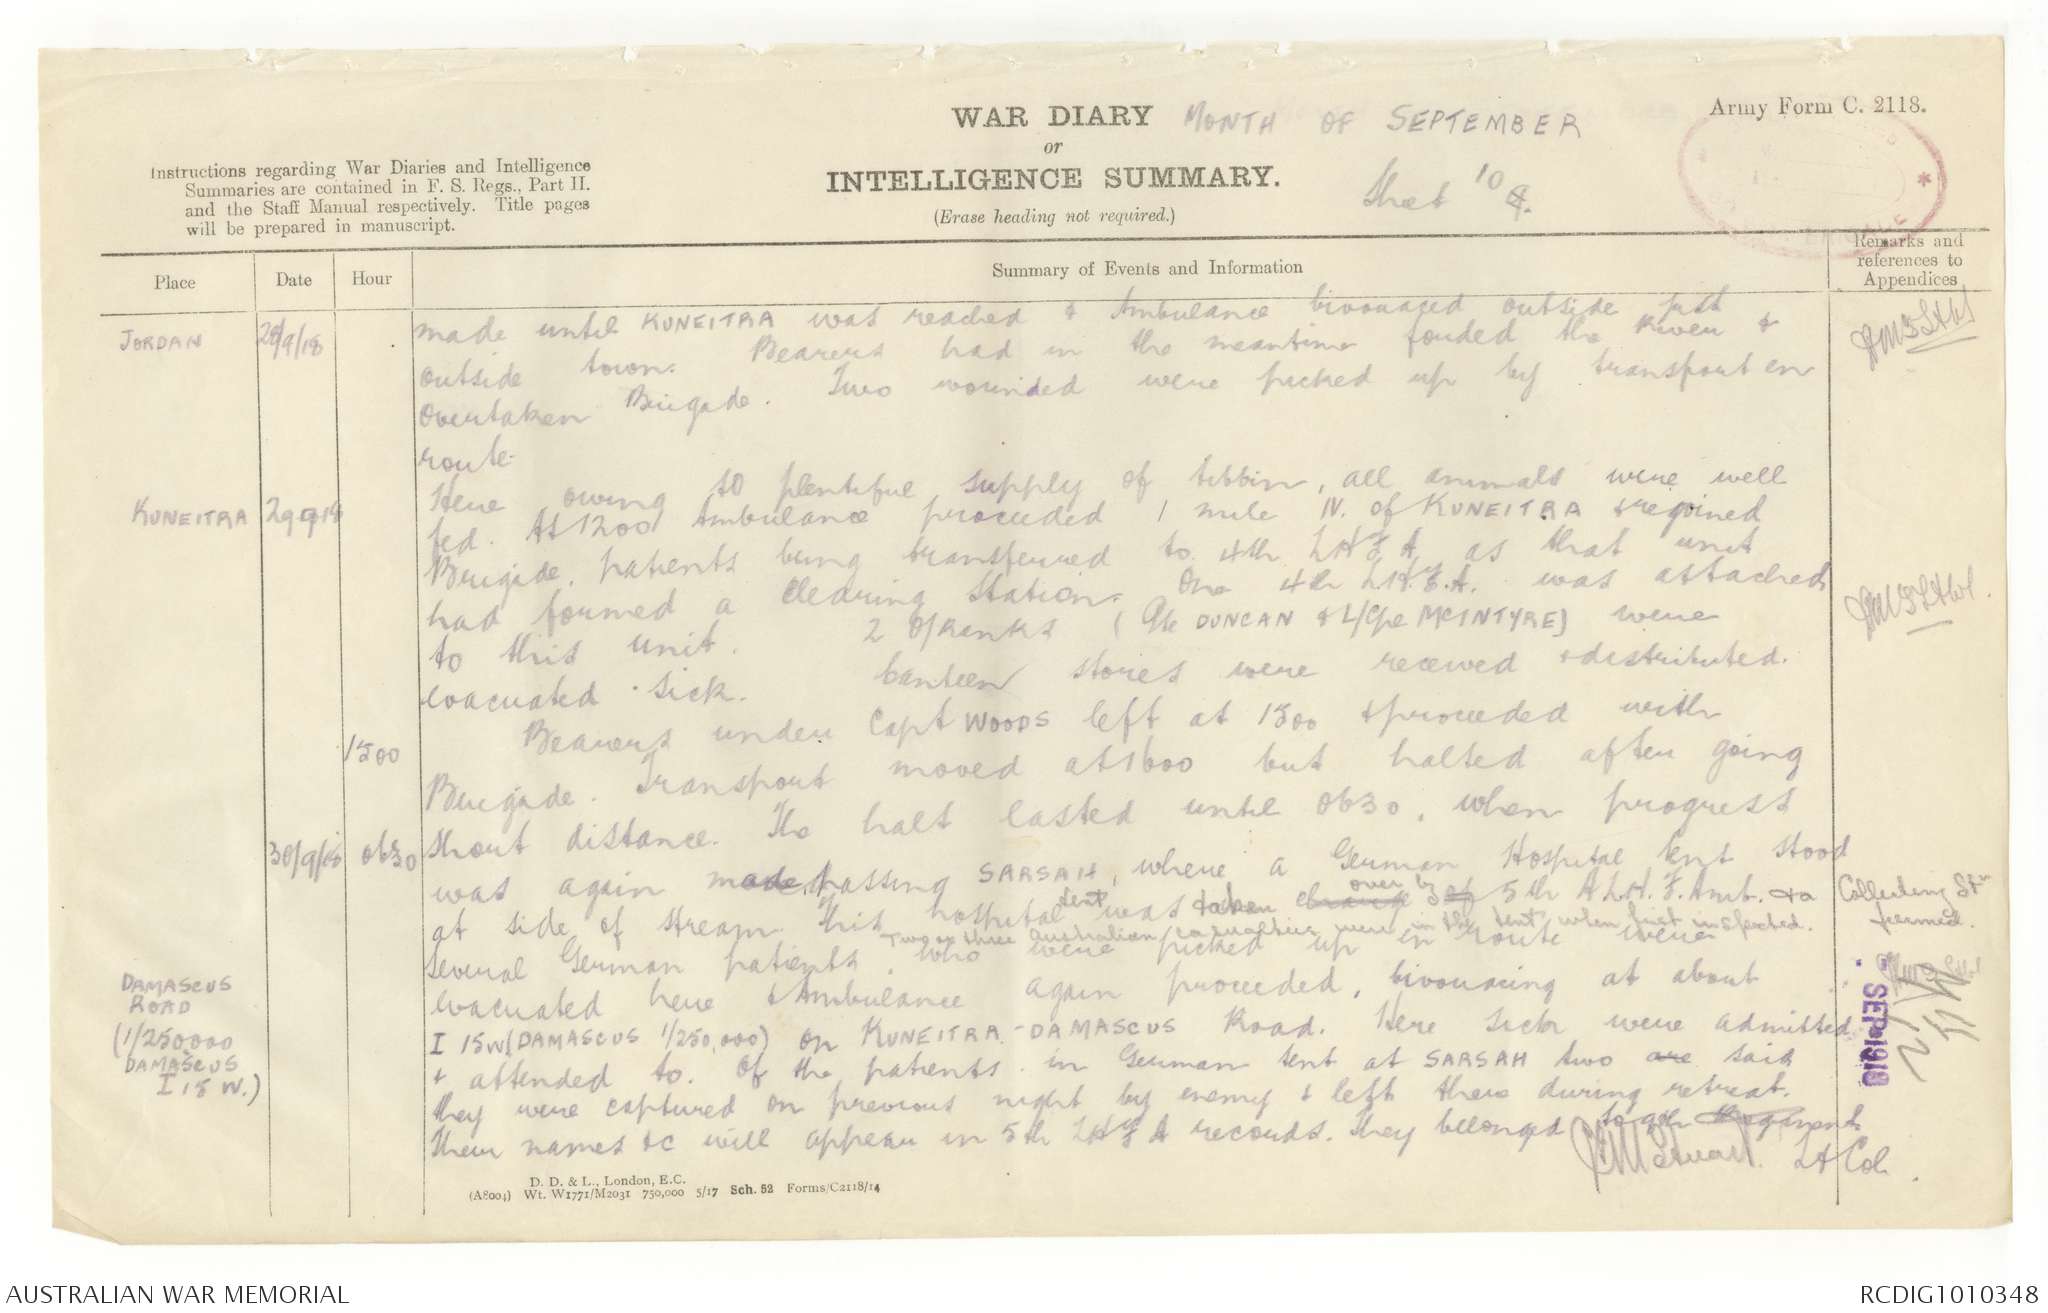 WAR DIARY MONTH OF SEPTEMBER
or
INTELLIGENCE SUMMARY.
(Erase heading not required.)
Sheet 10
Army Form C. 2118.
Instructions regarding War Diaries and Intelligence
Summaries are contained in F. S. Regs., Part II.
and the Staff Manual respectively. Title pages
will be prepared in manuscript.
Place Date Hour Summary of Events and Information Remarks and references to Appendices
JORDAN 28/9/18 made until KUNEITRA was reached & Ambulance bivouaced outside just
outside town. Bearers had in the meantime forded the River &
overtaken Brigade. Two wounded were picked up by transport en
route.
KUNEITRA 29/9/18 Here owing to plentiful supply of tibbin, all animals were well
fed. At 1200 Ambulance proceeded 1 mile N. of KUNEITRA & rejoined
Brigade, patients being transferred to 4th LHFA as that unit
had formed a Clearing Station. One 4th LHFA. was attached
to this unit. 2 O/Ranks (Pte DUNCAN & L/Cpe McINTYRE) were
evacuated sick. Canteen stores were received & distributed.
1500 Bearers under Capt WOODS left at 1500 & proceeded with
Brigade. Transport moved at 1600 but halted after going
short distance. The halt lasted until 0630, when progress
30/9/18 0630 was again made, passing SARSAH, where a German Hospital tent stood
at side of stream. This hospital tent was taken charge over by 5th A.L.H.F. Amb. &
Several German patients, who were picked up in route were
Two or three Australian casualties were in the tent when first inspected.
evacuated here & Ambulance again proceeded, bivouacing at about
I 15 W (DAMASCUS 1/250,000) on KUNEITRA-DAMASCUS Road. Here sick were admitted
& attended to. Of the patients in German tent at SARSAH two are said
they were captured on previous night by enemy & left there during retreat.
Their names &c will appear in 5th LHFA records. They belonged to 4th Regiment
Collecting Stn
formed.
DAMASCUS
ROAD
(1/250,000
DAMASCUS
I 15 W.)
SEP 1918
Stuart Lt Col.
D. D. & L., London, E.C.
(A8004) Wt. W1771/M2031 750,000 5/17 Sch. 52 Forms/C2118/14
AUSTRALIAN WAR MEMORIAL
RCDIG1010348